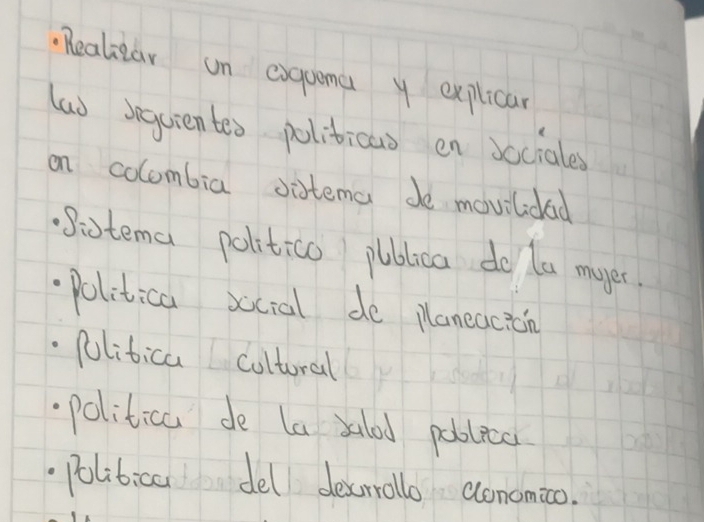 •Realizar un esquema y explicar
las siguientes politicas en sociales
en colombia sistema de movilidad
•Sistema politico publica de la mujer.
•Politica social de planeación
•Politica cultural
•politica de la salod poblica
•Politica del desarrollo economico.